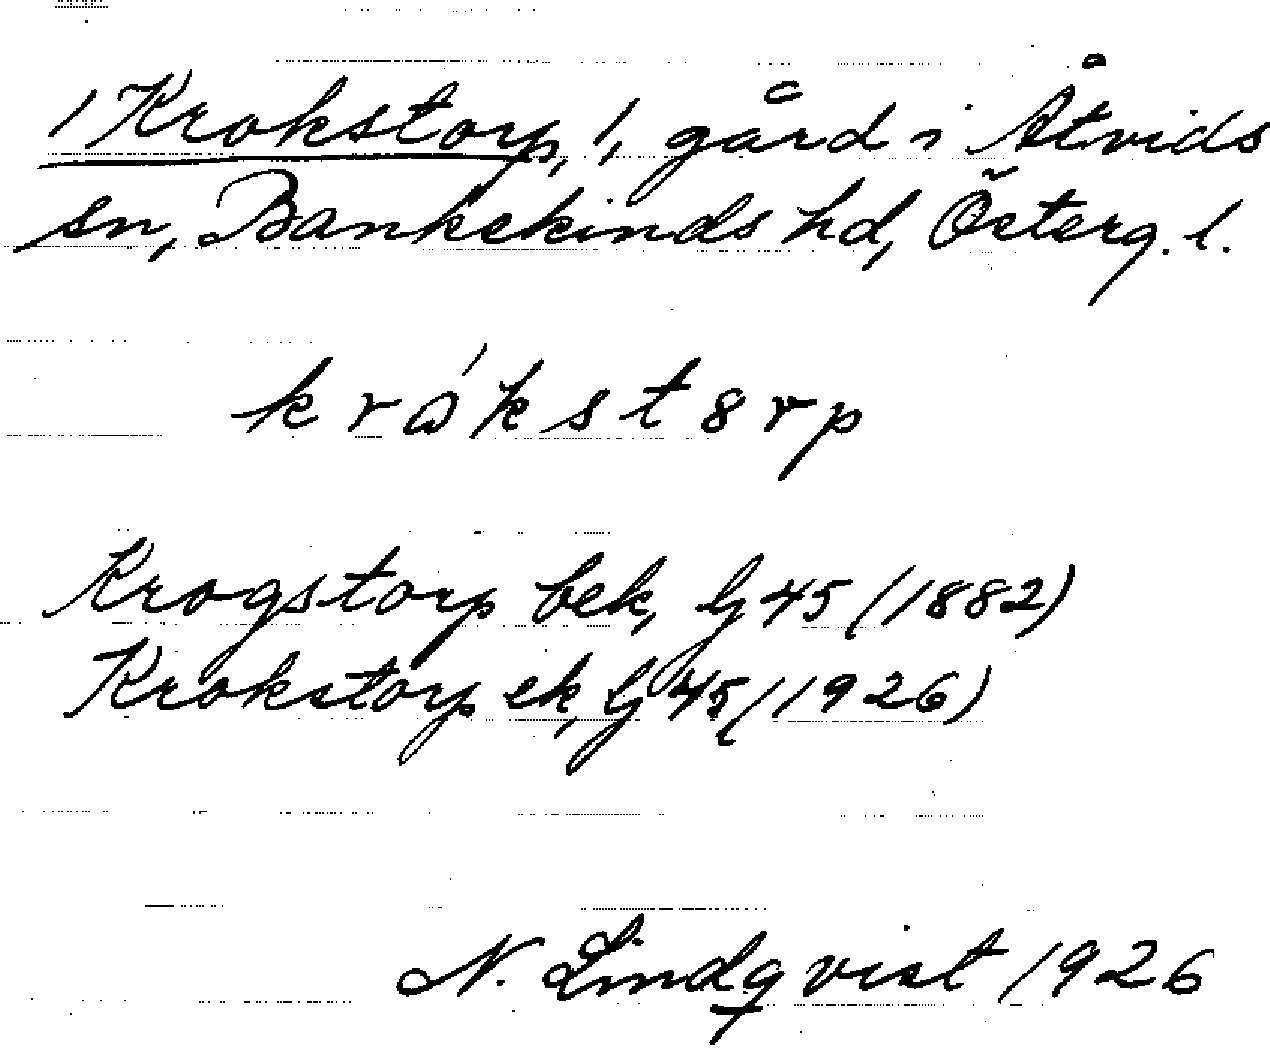 1 Krokstorp, 1, gård i Åtvids
sn, Bankekinds hd, Österg. l.
kråkstorp
Krogstorp bek, bj 45 (1882)
Krokstorp ek, bj 45 (1926)
N. Lindqvist 1926